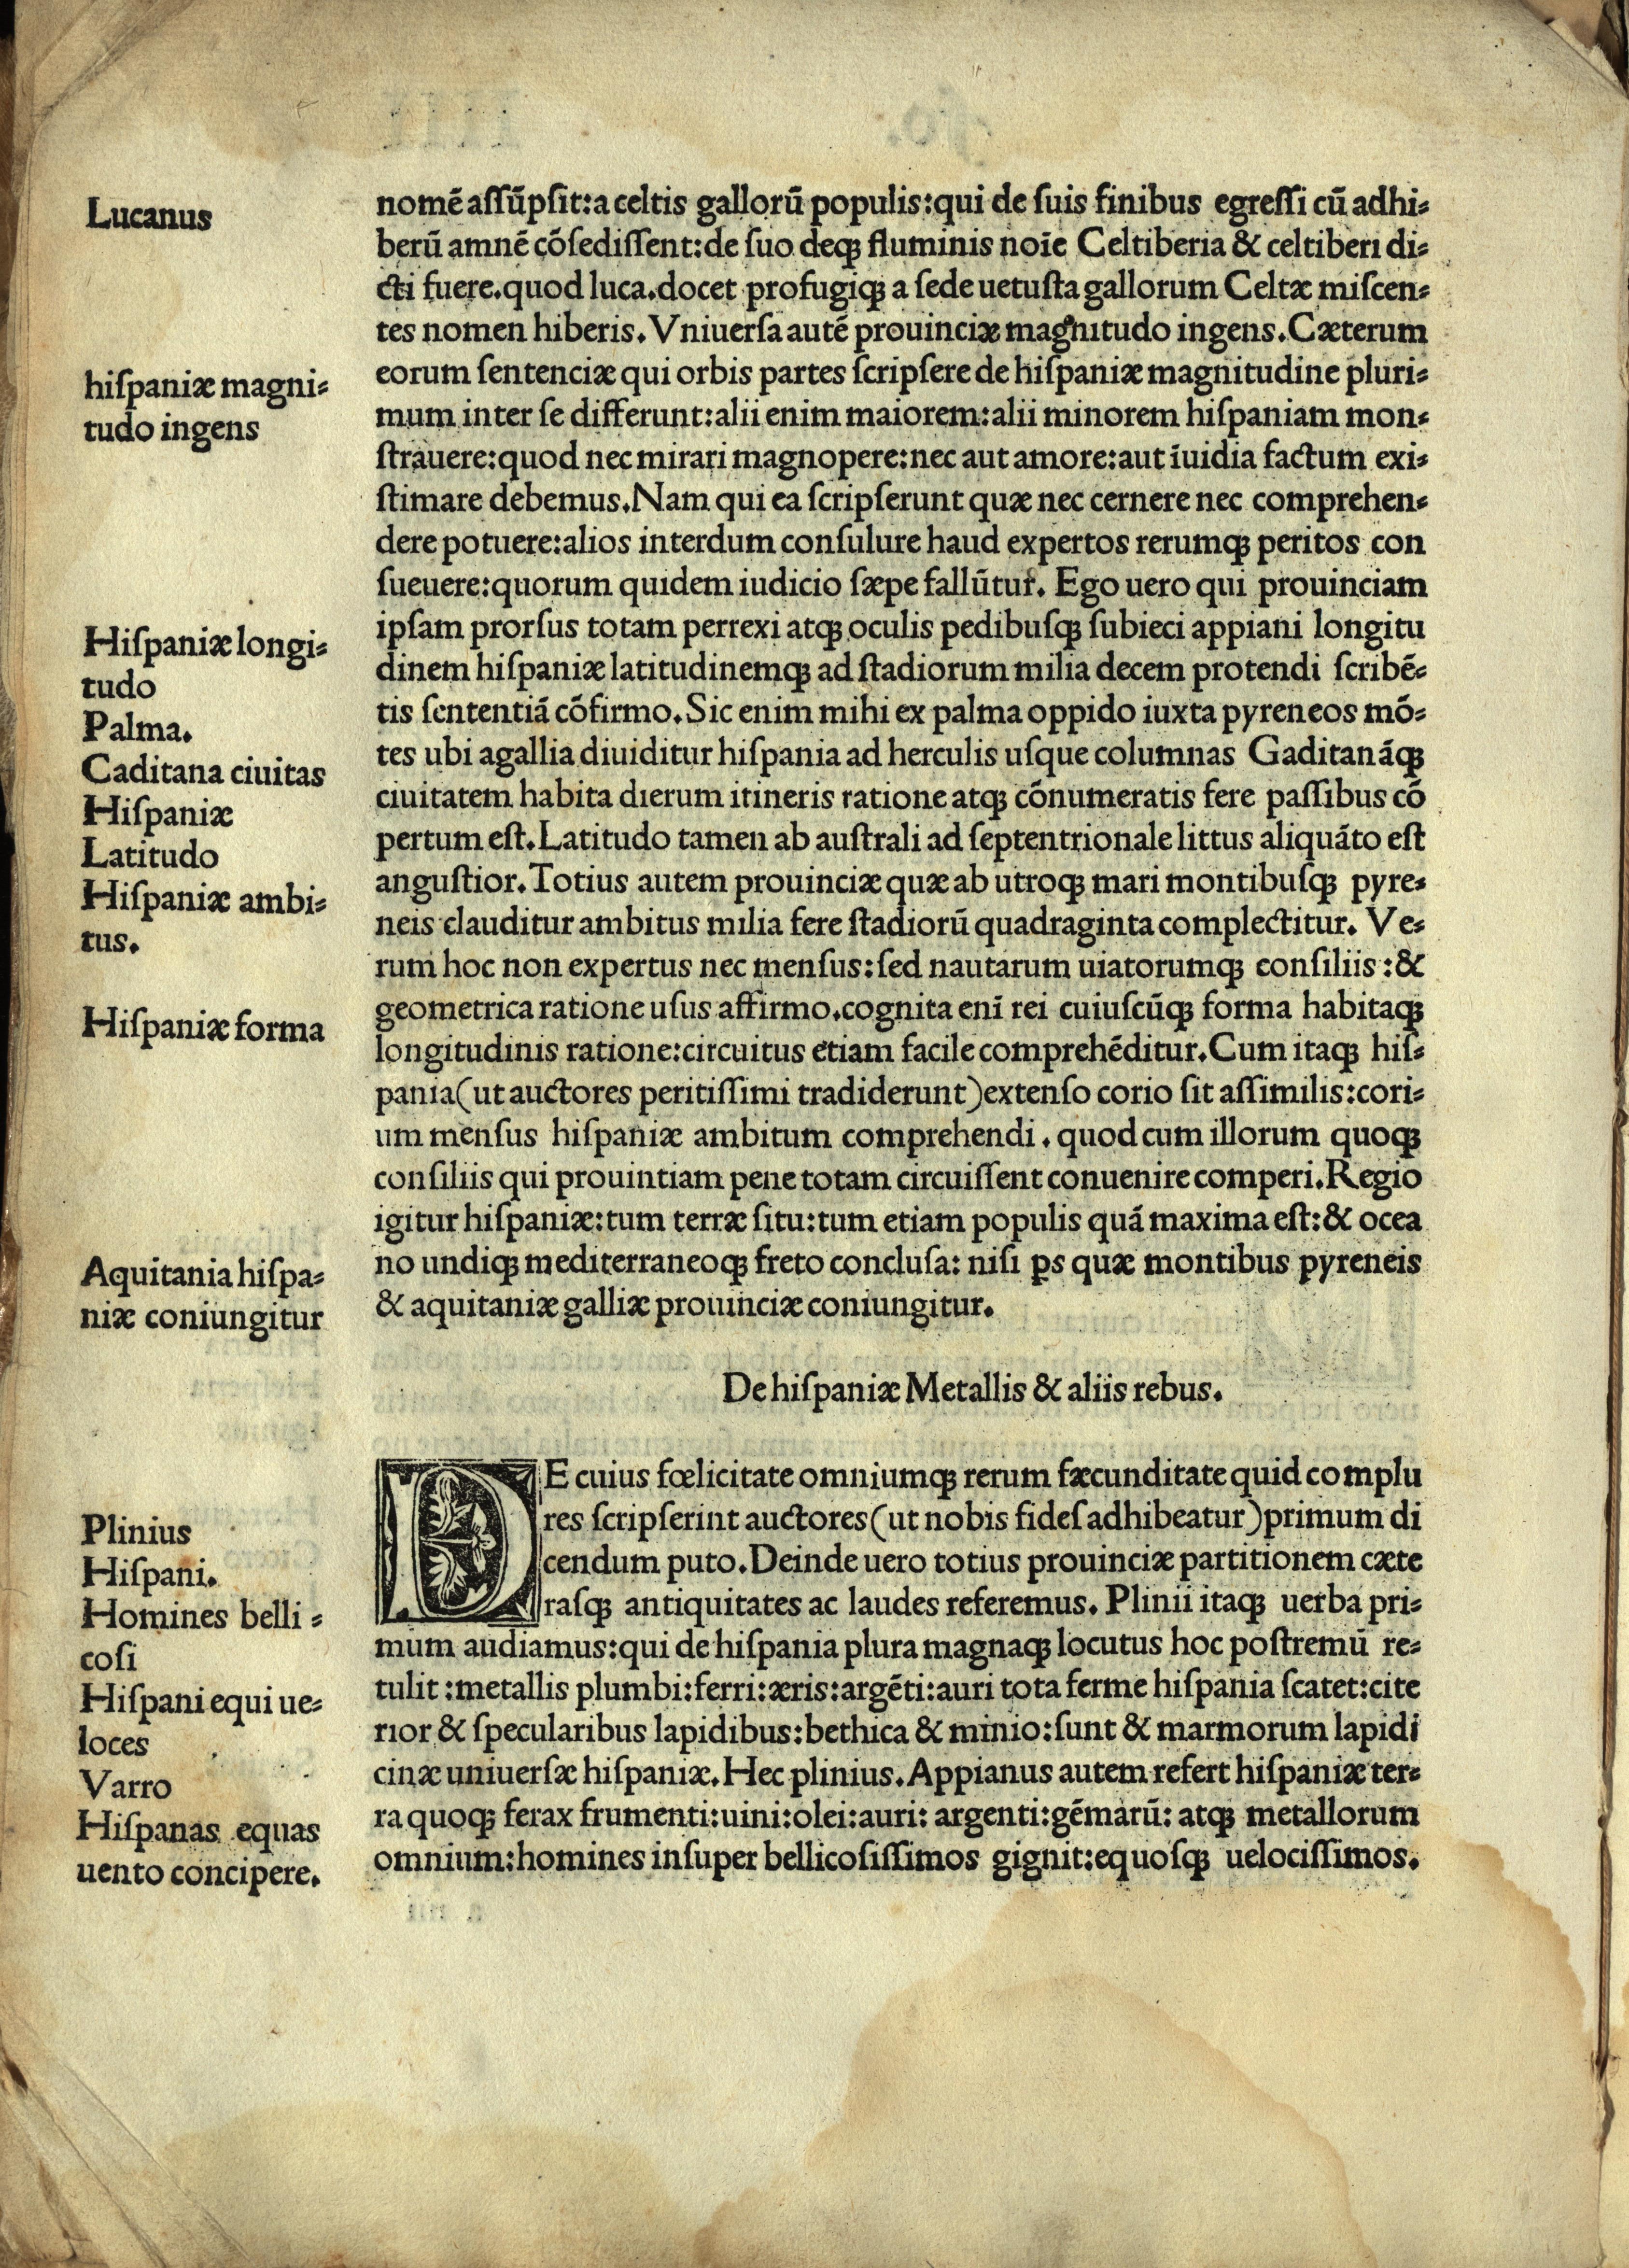 Lucanus
hiſpaniæ magni⸗
tudo ingens
Hiſpaniæ longi⸗
tudo
Palma.
Caditana ciuitas
Hiſpaniæ
Latitudo
Hiſpaniæ ambi⸗
tus.
Hiſpaniæ forma
Aquitania hiſpa⸗
niæ coniungitur
Plinius
Hiſpani.
Homines belli⸗
coſi
Hiſpani equi ue⸗
loces
Varro
Hiſpanas equas
uento concipere.
nomē aſſūpſit:a celtis gallorū populis:qui de ſuis finibus egreſſi cū adhi⸗
berū amnē cōſediſſent:de ſuo deqꝫ fluminis noīe Celtiberia & celtiberi di⸗
cti fuere.quod luca.docet profugiqꝫ a ſede uetuſta gallorum Celtæ miſcen⸗
tes nomen hiberis.Vniuerſa autē prouinciæ magnitudo ingens.Cæterum
eorum ſentenciæ qui orbis partes ſcripſere de hiſpaniæ magnitudine pluri⸗
mum inter ſe differunt:alii enim maiorem:alii minorem hiſpaniam mon⸗
ſtrauere:quod nec mirari magnopere:nec aut amore:aut īuidia factum exi⸗
ſtimare debemus.Nam qui ea ſcripſerunt quæ nec cernere nec comprehen⸗
dere potuere:alios interdum conſulure haud expertos rerumqꝫ peritos con
ſueuere:quorum quidem iudicio ſæpe fallūtur. Ego uero qui prouinciam
ipſam prorſus totam perrexi atqꝫ oculis pedibuſqꝫ ſubieci appiani longitu
dinem hiſpaniæ latitudinemqꝫ ad ſtadiorum milia decem protendi ſcribē⸗
tis ſententiā cōfirmo.Sic enim mihi ex palma oppido iuxta pyreneos mō⸗
tes ubi agallia diuiditur hiſpania ad herculis uſque columnas Gaditanāqꝫ
ciuitatem habita dierum itineris ratione atqꝫ cōnumeratis fere paſſibus cō
pertum eſt.Latitudo tamen ab auſtrali ad ſeptentrionale littus aliquāto eſt
anguſtior.Totius autem prouinciæ quæ ab utroqꝫ mari montibuſqꝫ pyre⸗
neis clauditur ambitus milia fere ſtadiorū quadraginta complectitur. Ve⸗
rum hoc non expertus nec menſus:ſed nautarum uiatorumqꝫ conſiliis:&
geometrica ratione uſus affirmo.cognita enī rei cuiuſcūqꝫ forma habitaqꝫ
longitudinis ratione:circuitus etiam facile comprehēditur.Cum itaqꝫ hiſ⸗
pania(ut auctores peritiſſimi tradiderunt)extenſo corio ſit aſſimilis:cori⸗
um menſus hiſpaniæ ambitum comprehendi.quod cum illorum quoqꝫ
conſiliis qui prouintiam pene totam circuiſſent conuenire comperi.Regio
igitur hiſpaniæ:tum terræ ſitu:tum etiam populis quā maxima eſt:& ocea
no undiqꝫ mediterraneoqꝫ freto concluſa: niſi ꝑs quæ montibus pyreneis
& aquitaniæ galliæ prouinciæ coniungitur.
De hiſpaniæ Metallis & aliis rebus.
DE cuius fœlicitate omniumqꝫ rerum fæcunditate quid complu
res ſcripſerint auctores(ut nobis fideſ adhibeatur)primum di
cendum puto.Deinde uero totius prouinciæ partitionem cæte
raſqꝫ antiquitates ac laudes referemus. Plinii itaqꝫ uerba pri⸗
mum audiamus:qui de hiſpania plura magnaqꝫ locutus hoc poſtremū re⸗
tulit:metallis plumbi:ferri:æris:argēti:auri tota ferme hiſpania ſcatet:cite
rior & ſpecularibus lapidibus:bethica & minio:ſunt & marmorum lapidi
cinæ uniuerſæ hiſpaniæ.Hec plinius.Appianus autem refert hiſpaniæ ter⸗
ra quoqꝫ ferax frumenti:uini:olei:auri: argenti:gēmarū: atqꝫ metallorum
omnium:homines inſuper bellicoſiſſimos gignit:equoſqꝫ uelociſſimos.